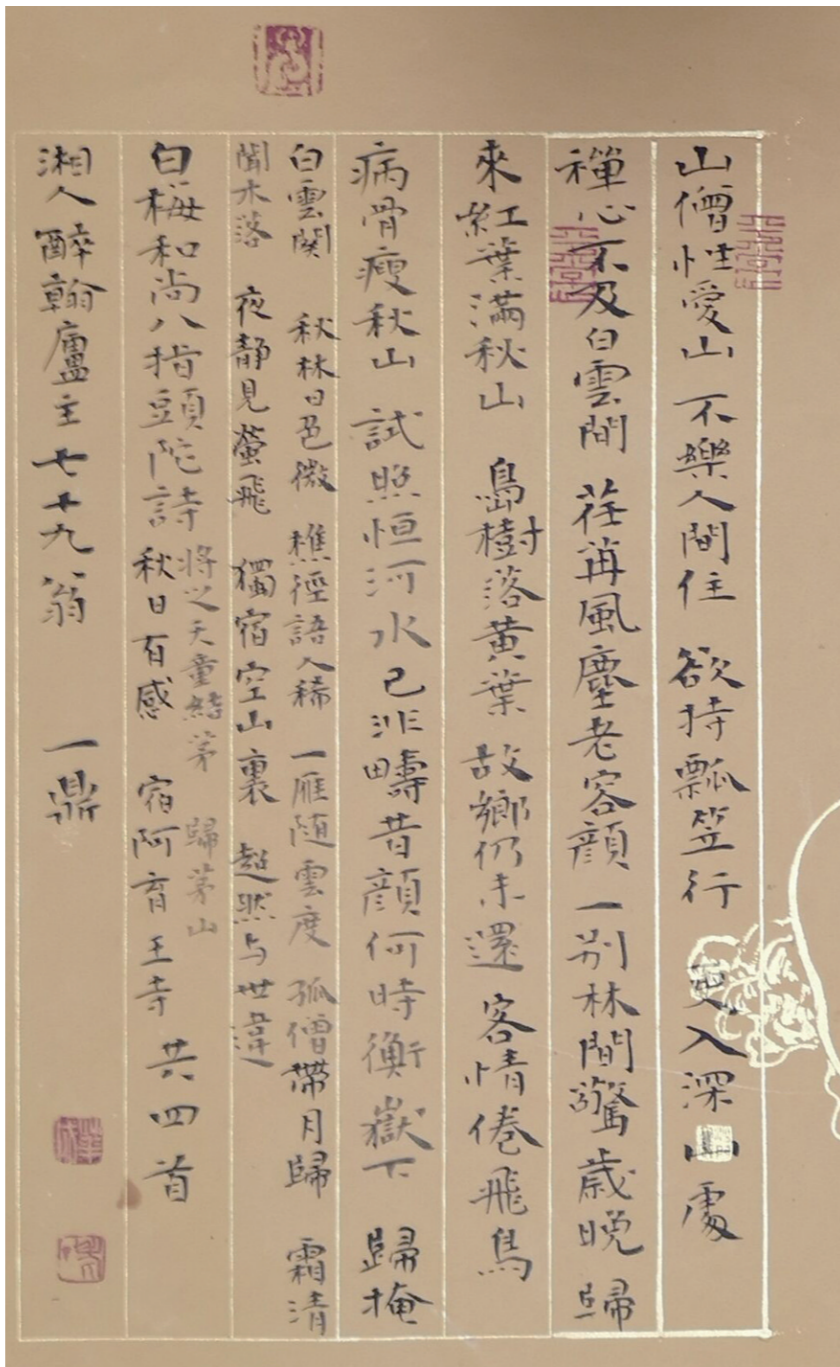 山僧性愛山 不樂人間住 欲持瓢笠行 更入深山處
禪心不及白雲間 荏苒風塵老客顏 一別林間驚歲晚 歸
來紅葉滿秋山 島樹落黃葉 故鄉仍未還 客情倦飛鳥
病骨瘦秋山 試照恒河水 已非疇昔顏 何時衡嶽下 歸掩
白雲關 秋林日色微 樵徑語人稀 一雁随雲度 孤僧帶月歸 霜清
聞木落 夜靜見螢飛 獨宿空山裏 超然与世違
白梅和尚八指頭陀詩 將之天童結茅 歸茅山
秋日有感 宿阿育王寺 共四首
湘人醉翰廬主七十九翁 一鼎